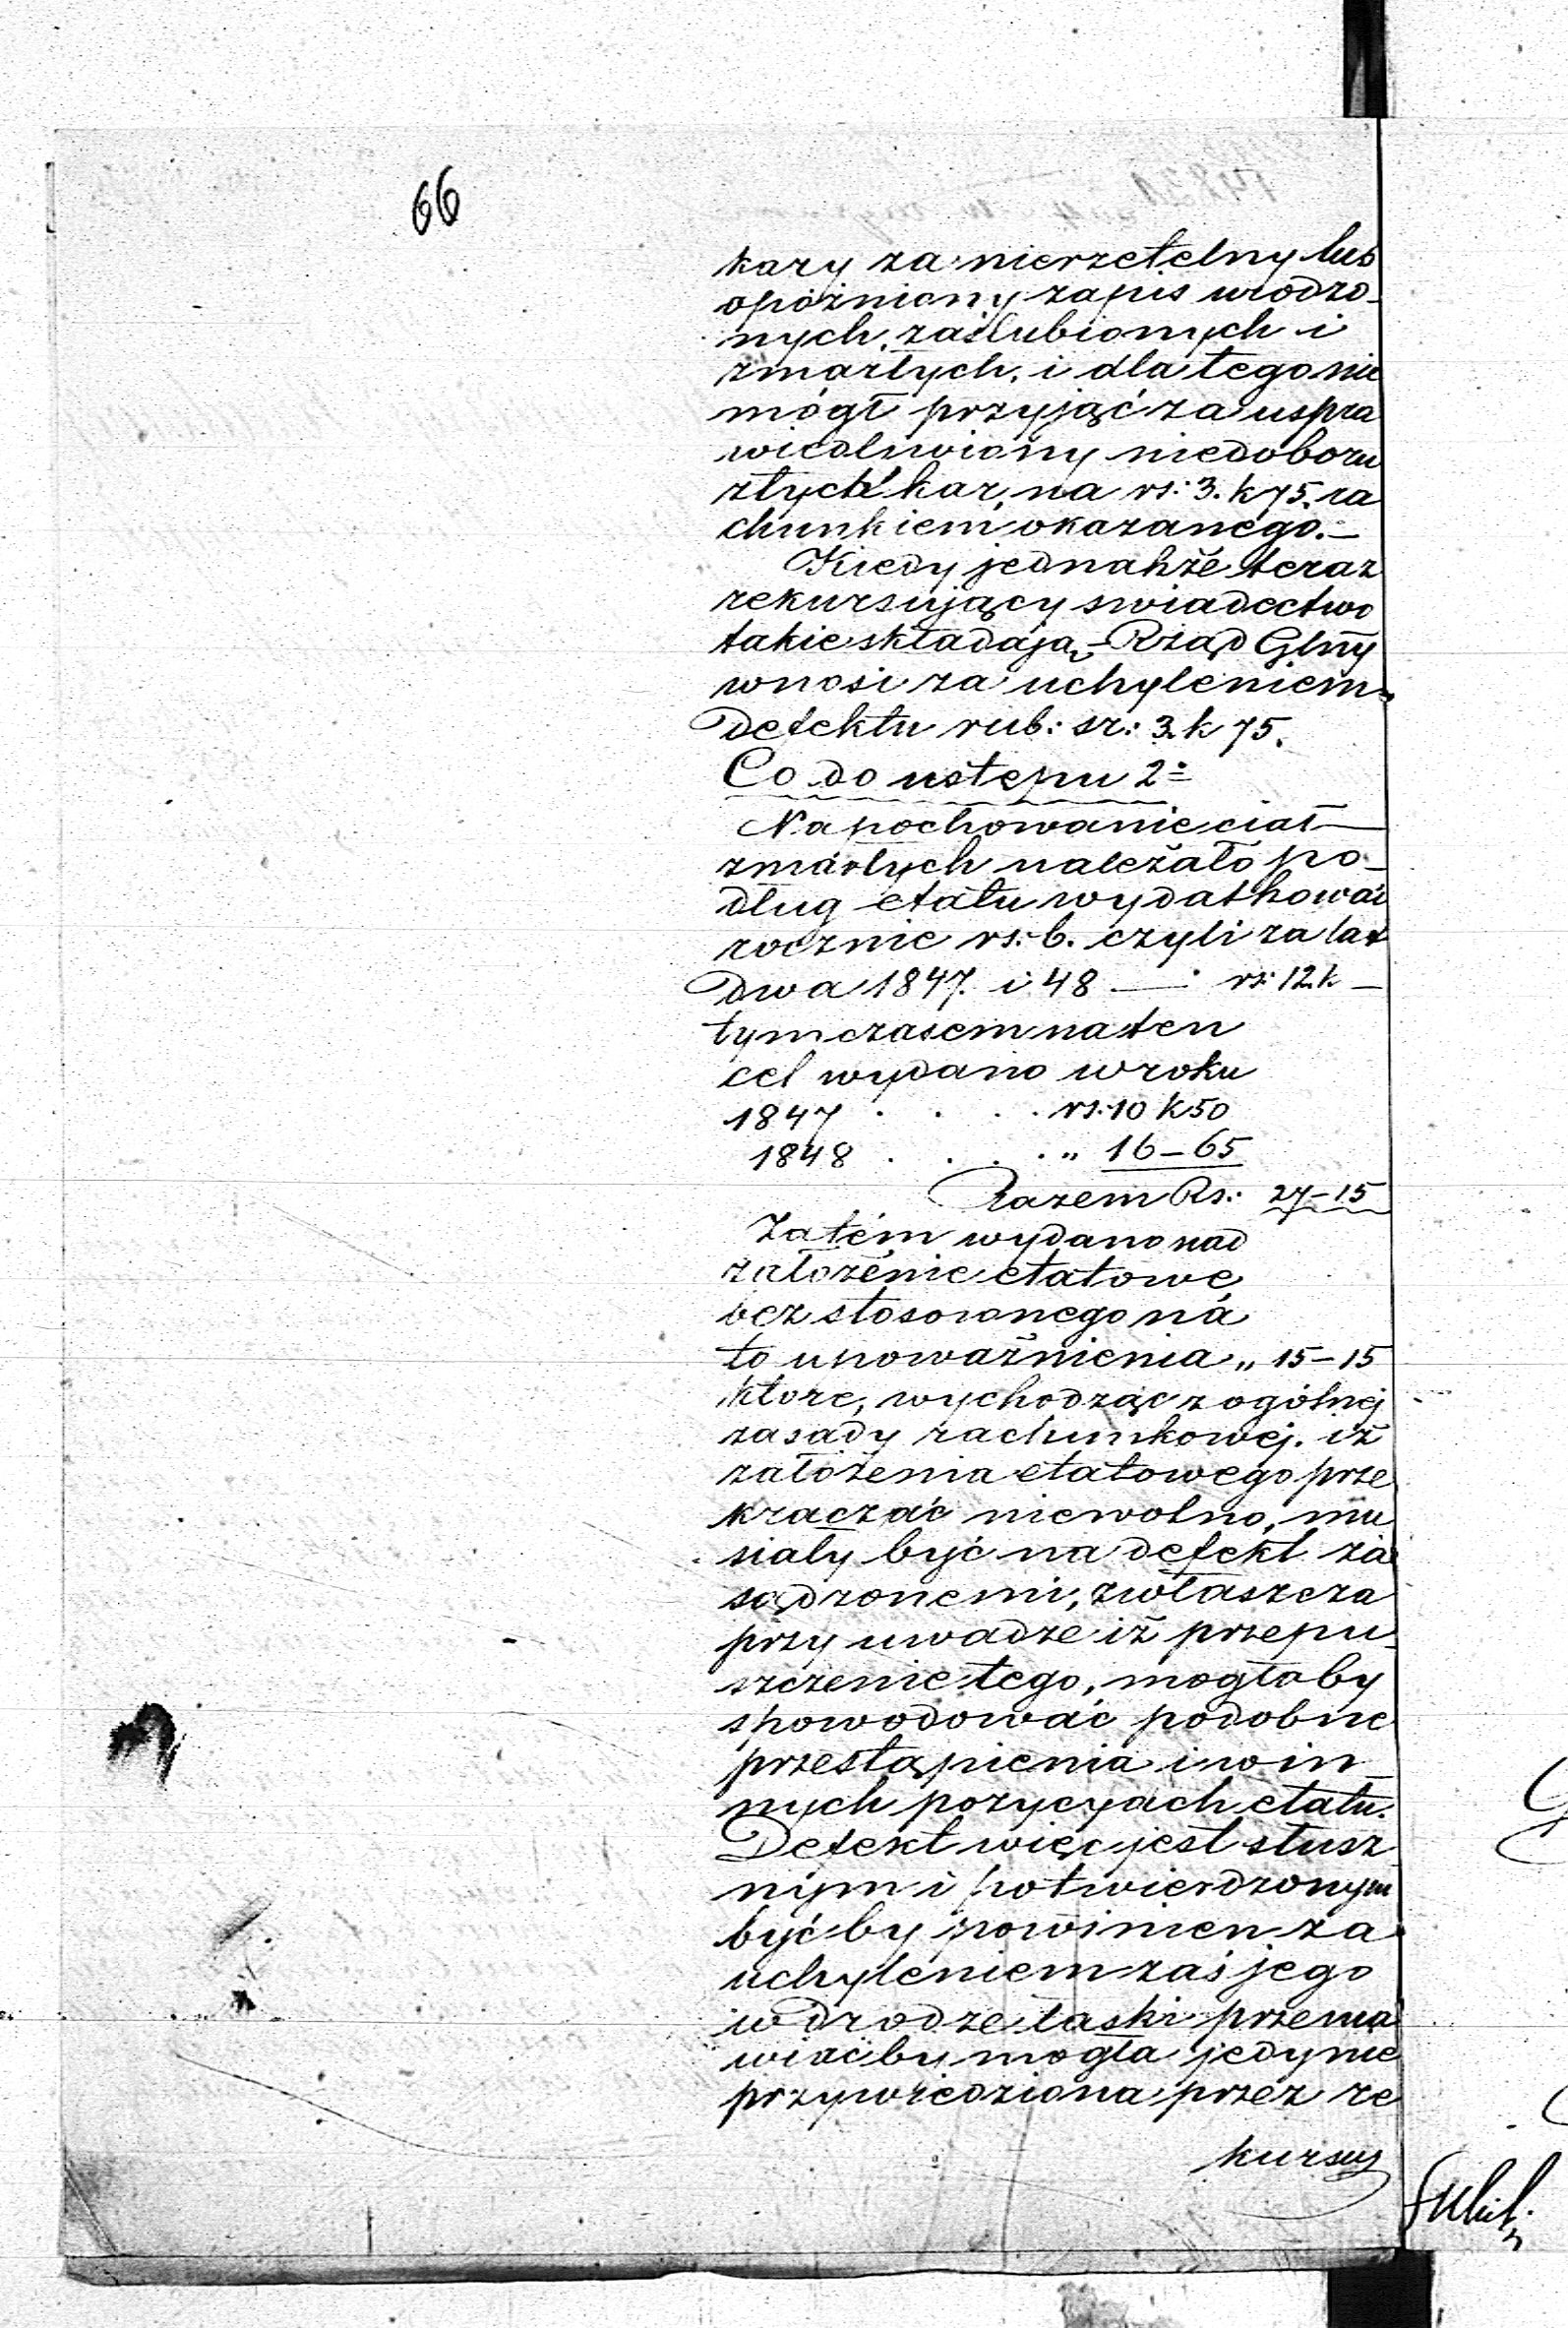 66
kary za nierzetelny lub
opóźniony zapis urodzo-
nych, zaślubionych i
zmarłych, i dla tego nie
mógł przyjąć za uspra
wiedliwiony niedoboru
ztych kar, na rs: 3. k 75. ra
chunkiem okazanego.—
Kiedy jednakże teraz
rekursujący swiadectwo
takie składają,— Rząd Glny
wnosi za uchyleniem
Defektu rub: sr: 3. k 75.
Co do ustępu 2:
Na pochowanie ciał
zmarłych należało po-
dług etatu wydatkować
rocznie rs: 6. czyli za lat
Dwa 1847. i 48 — rs: 12. k —
tymczasem na ten
cel wydano w roku
1847 . . . . rs: 10 k 50
1848 . . . . „ 16 – 65
Razem Rs: 27 – 15
Zatém wydano nad
założenie etatowe
bez stosownego na
to upoważnienia „ 15 – 15
które, wychodząc z ogólnej
zasady rachunkowej. iż
założenia etatowego prze
kraczać niewolno, mu
siały być na defekt za
sądzonemi, zwłaszcza
przy uwadze iż przepu-
szczenie tego, mogłoby
spowodować podobne
przestąpienia i w in-
nych pozycyach etatu.
Defekt więc jest słusz
nym i potwierdzonym
być by powinien za
uchyleniem zaś jego
w Drodze łaski przema
wiać by mogła jedynie
przywiedziona przez re
kursuj